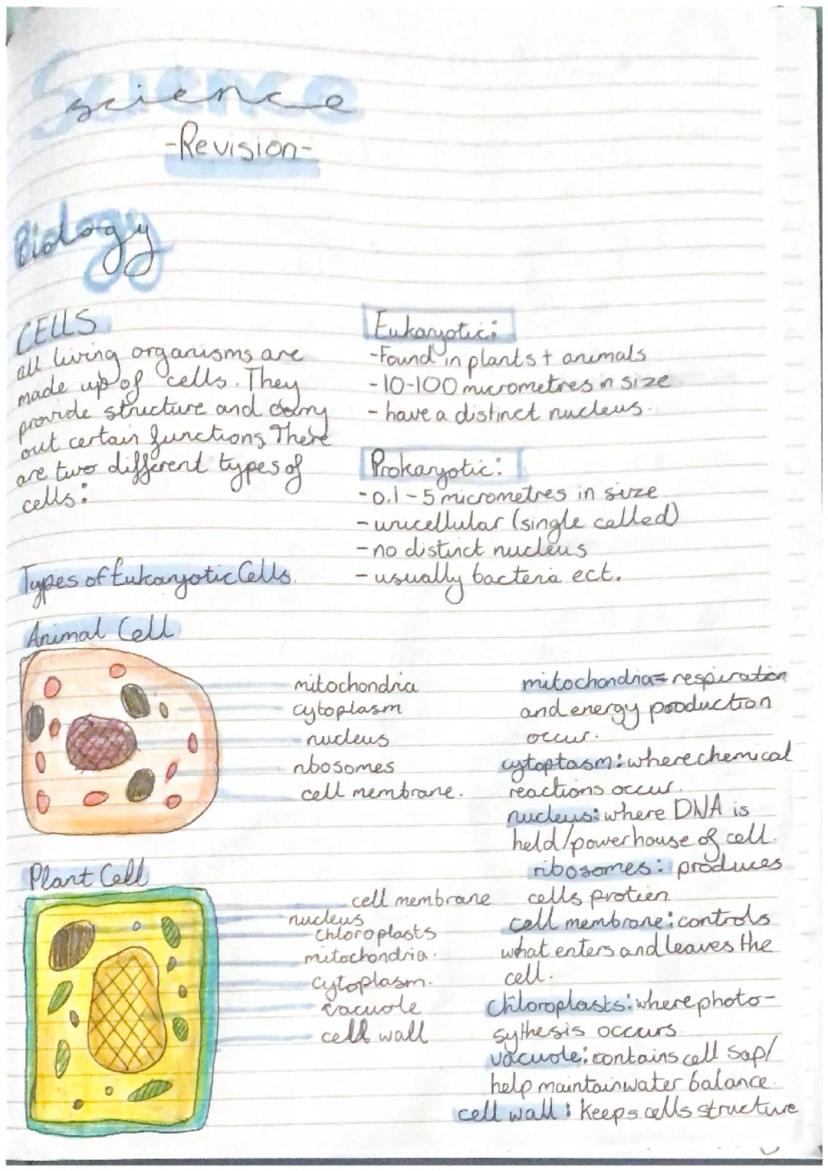 Science
science
-Revision-
Biology
CELLS
all living organisms are
made up of cells. They
provide structure and carry
out certain functions. There
are two different types of
cells:
Eukaryotic:
-Found in plants + animals
-10-100 micrometres in size
- have a distinct nucleus.
Prokaryotic:
-0.1-5 micrometres in size
- unicellular (single celled)
- no distinct nucleus
- usually bacteria ect.
Types of Eukaryotic Cells.
Animal Cell
mitochondria
cytoplasm
nucleus
ribosomes
cell membrane.
mitochondria= respiration
and energy production
occur.
cytoplasm: where chemical
reactions occur.
nucleus: where DNA is
held/powerhouse of cell.
ribosomes: produces
cells protien
cell membrane: controls
what enters and leaves the
cell.
chloroplasts: where photo-
sythesis occurs
vacuole: contains cell sap/
help maintain water balance
cell wall: keeps cells structure
Plant Cell
cell membrane
nucleus
chloroplasts
mitochondria.
cytoplasm.
vacuole
cell wall